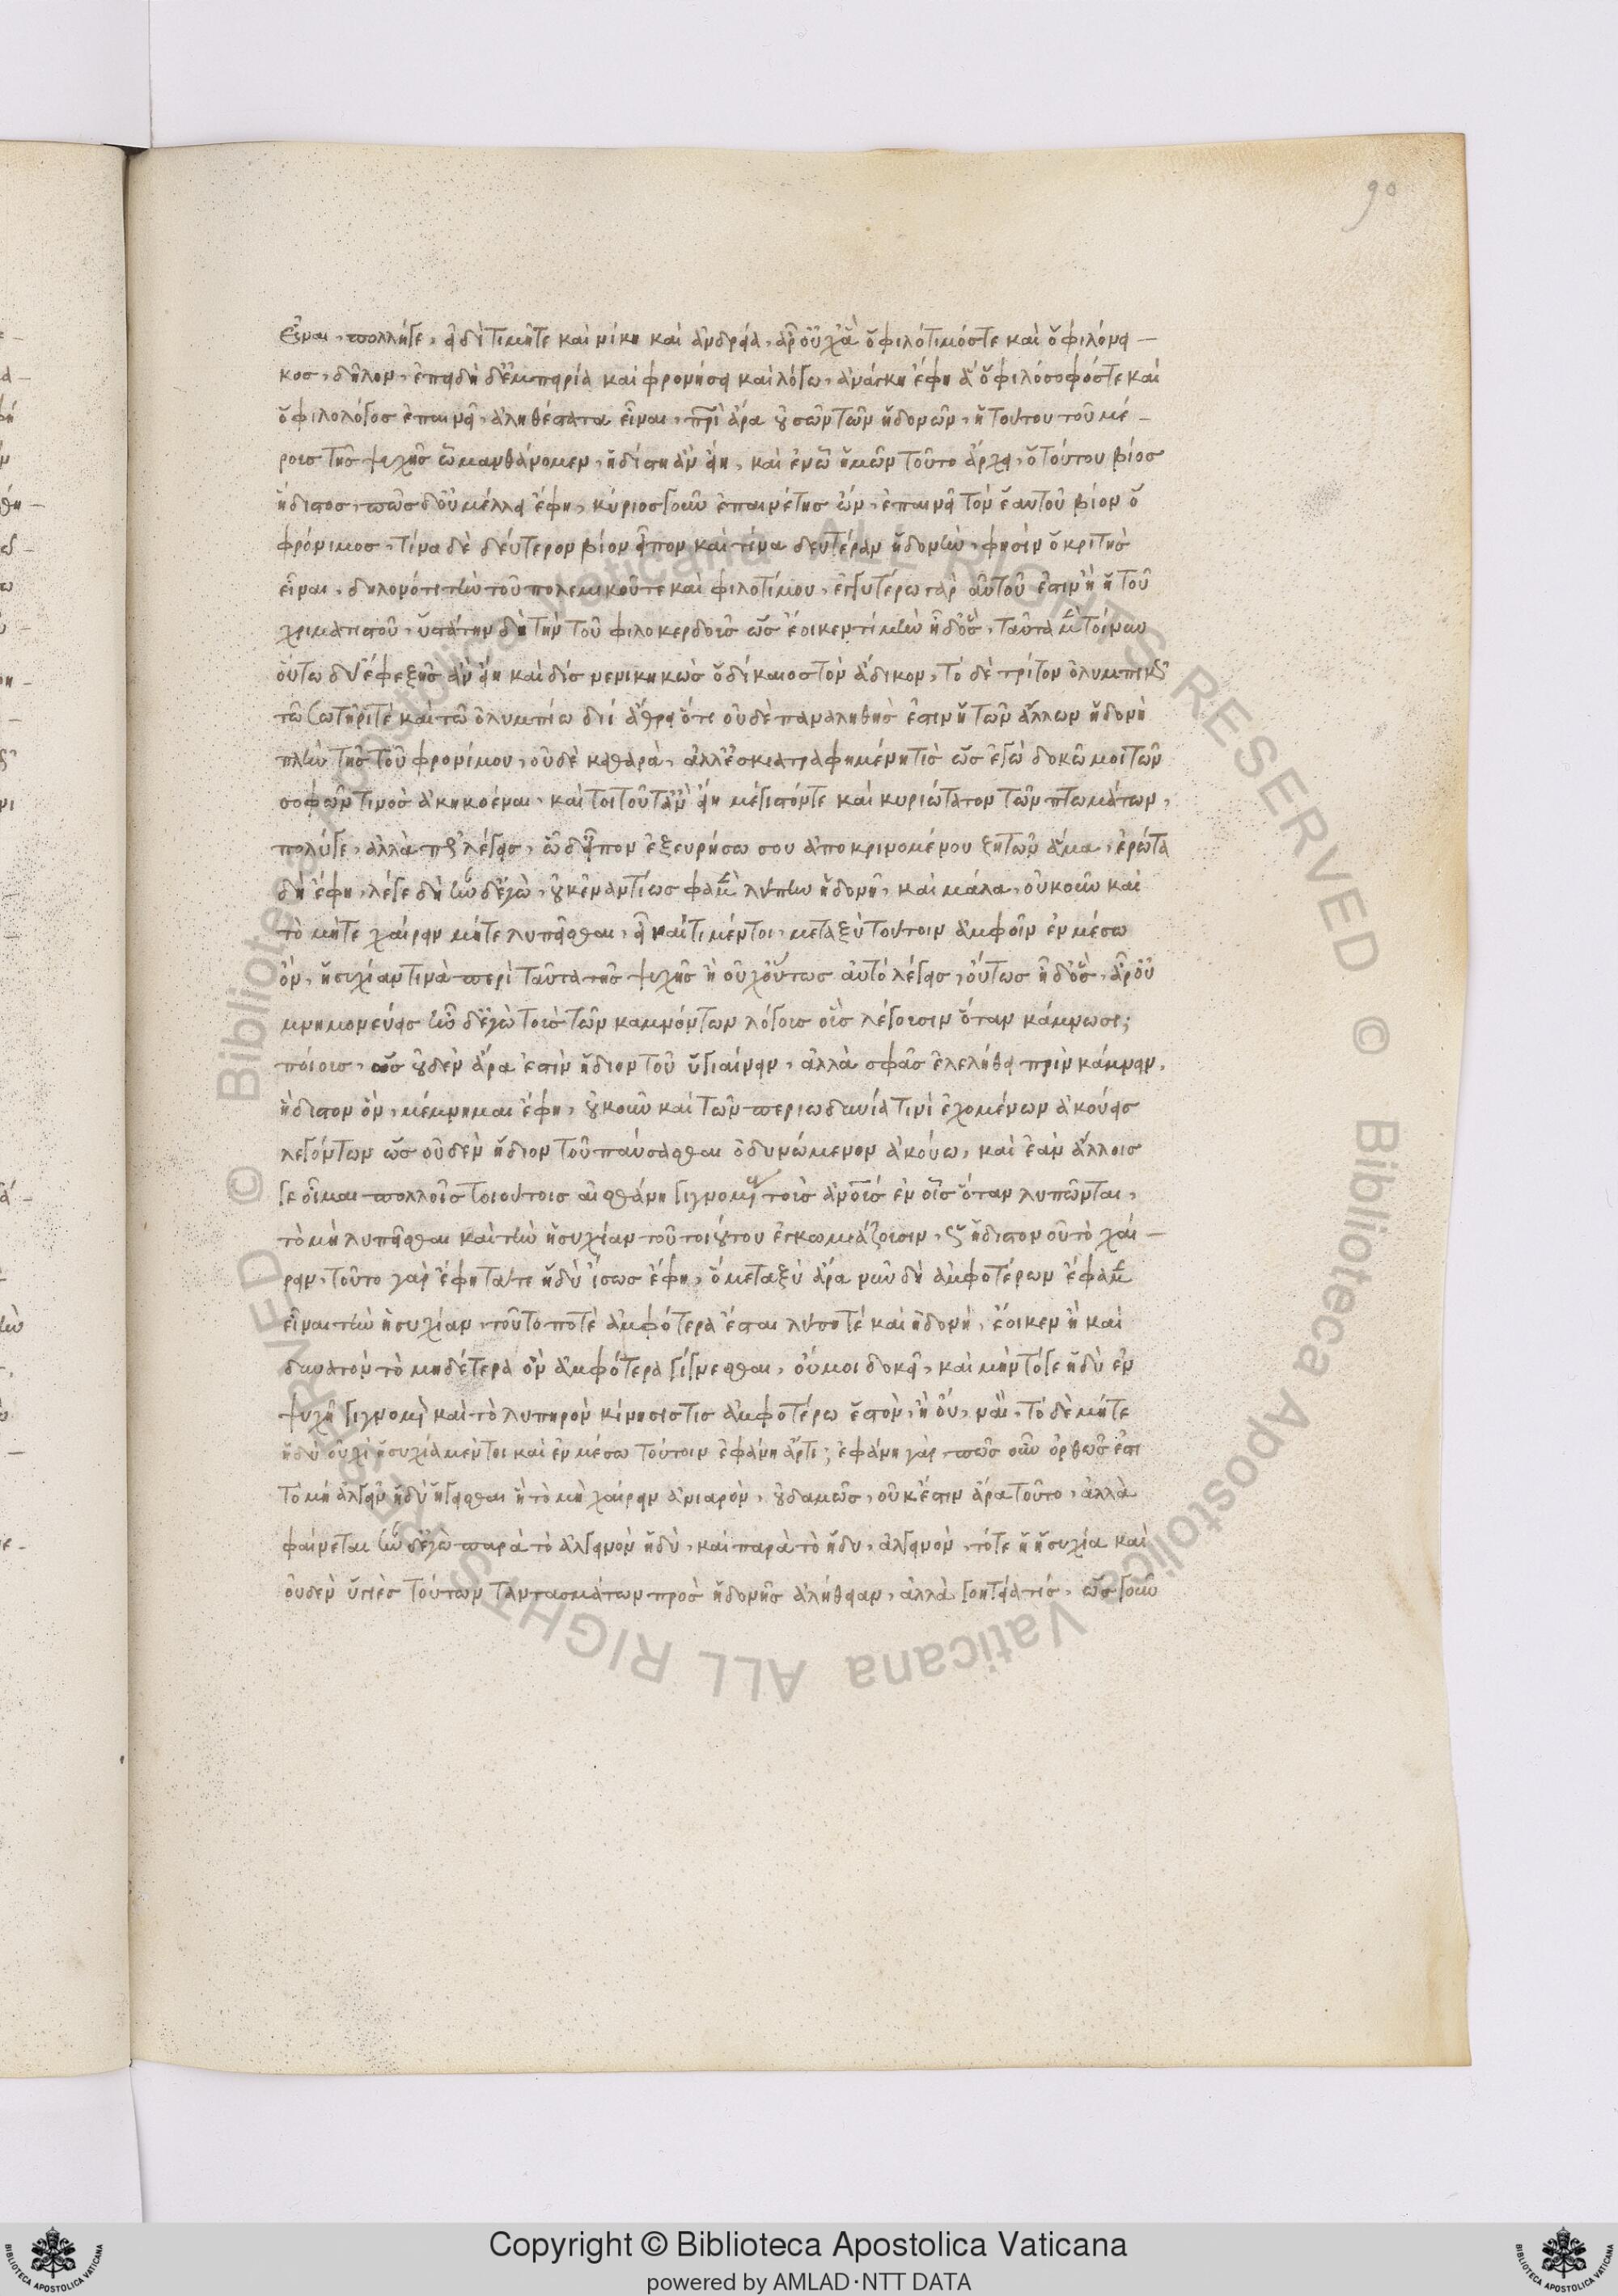 εἶναι. πολλήγε. εἰ δὲ τιμῆτε καὶ νίκη καὶ ἀνδρεία. ἆρ' οὐχ ἃ ὁ φιλότιμόστε καὶ ὁ φιλόνει-
κος. δῆλον. ἐπειδὴ δ' ἐμπειρία καὶ φρονήσει καὶ λόγω. ἀνάγκη ἔφη ἃ ὁ φιλόσοφόστε καὶ
ὁ φιλολόγος ἐπαινεῖ. ἀληθέστατα εἶναι. τριῶν ἄρα οὐσῶν τῶν ἡδονῶν. ἡ τούτου τοῦ μέ-
ρους τῆς ψυχῆς ὧ μανθάνομεν, ἡδίστη ἂν εἴη. καὶ ἐν ὧ ἡμῶν τοῦτο ἄρχει. ὁ τούτου βίος
ἥδιστος. πῶς δ' οὐ μέλλει ἔφη. κύριος γοῦν ἐπαινέτης ὢν. ἐπαινεῖ τὸν ἑαυτοῦ βίον ὁ
φρόνιμος. τίνα δὲ δεύτερον βίον εἶπον καὶ τίνα δευτέραν ἡδονὴν. φησὶν ὁ κριτὴς
εἶναι. δηλονότι τὴν τοῦ πολεμικοῦτε καὶ φιλοτίμου. ἐγγυτέρω γὰρ αὐτοῦ ἐστιν ἢ ἡ τοῦ
χρηματιστοῦ. ὑστάτην δὴ τὴν τοῦ φιλοκερδοῦς ὡς ἔοικεν. τί μὴν ἦ δ' ὅς. ταῦτα μὲν τοίνυν
οὕτω δύ' ἐφεξῆς ἂν εἴη καὶ δὶς νενικηκὼς ὁ δίκαιος τὸν ἄδικον. τὸ δὲ τρίτον ὀλυμπικῶς
τῶ σωτῆρίτε καὶ τῶ ὀλυμπίω διί ἄθρει ὅτι οὐδὲ παναληθὴς ἐστιν ἡ τῶν ἄλλων ἡδονὴ
πλὴν τῆς τοῦ φρονίμου. οὐδὲ καθαρὰ. ἀλλ' ἐσκιαγραφημένη τις ὡς ἐγὼ δοκῶ μοι τῶν
σοφῶν τινος ἀκηκοέναι. καὶ τοι τοῦτ' ἂν εἴη μέγιστόντε καὶ κυριώτατον τῶν πτωμάτων.
πολύγε. ἀλλὰ πῶς λέγεις. ὧδ' εἶπον ἐξευρήσω σου ἀποκρινομένου ζητῶν ἅμα. ἐρώτα
δὴ ἔφη. λέγε δὴ ἦν δ' ἐγὼ. οὐκ ἐναντίως φαμὲν λύπην ἡδονῆ. καὶ μάλα. οὐκοῦν καὶ
τὸ μήτε χαίρειν μήτε λυπεῖσθαι. εἶναί τι μέντοι. μεταξὺ τούτοιν ἀμφοῖν ἐν μέσω
ὂν. ἡσυχίαν τινὰ περὶ ταῦτα τῆς ψυχῆς ἢ οὐχ οὕτως αὐτὸ λέγεις. οὕτως ἦ δ' ὅς. ἆρ' οὐ
μνημονεύεις ἦν δ' ἐγὼ τοὺς τῶν καμνόντων λόγους οὓς λέγουσιν ὅταν κάμνωσι;
ποίους. ὡς οὐδὲν ἄρα ἐστὶν ἥδιον τοῦ ὑγιαίνειν. ἀλλὰ σφᾶς ἐλελήθει πρὶν κάμνειν.
ἥδιστον ὂν. μέμνημαι ἔφη. οὐκοῦν καὶ τῶν περιωδυνία τινὶ ἐχομένων ἀκούεις
λεγόντων ὡς οὐδὲν ἥδιον τοῦ παύσασθαι ὀδυνώμενον ἀκούω. καὶ ἐὰν ἄλλοις
γε οἶμαι πολλοῖς τοιούτοις αἰσθάνη γιγνομένους τοὺς ἀνθρώπους ἐν οἷς ὅταν λυπῶνται.
τὸ μὴ λυπεῖσθαι καὶ τὴν ἡσυχίαν τοῦ τοιούτου ἐγκωμιάζουσιν. ὡς ἥδιστον οὐ τὸ χαί-
ρειν. τοῦτο γὰρ ἔφη τότε ἡδὺ ἴσως ἔφη. ὃ μεταξὺ ἄρα νῦν δὴ ἀμφοτέρων ἔφαμεν
εἶναι τὴν ἡσυχίαν. τοῦτο ποτὲ ἀμφότερα ἔσται λύπητέ καὶ ἡδονὴ. ἔοικεν ἢ καὶ
δυνατὸν τὸ μηδέτερα ὂν ἀμφότερα γίγνεσθαι. οὔμοι δοκεῖ. καὶ μὴν τόγε ἡδὺ ἐν
ψυχῆ γιγνόμενον καὶ τὸ λυπηρὸν κίνησις τις ἀμφοτέρω ἐστὸν. ἢ οὔ. ναί. τὸ δὲ μήτε
ἡδὺ οὐχὶ ἡσυχία μέντοι καὶ ἐν μέσω τούτοιν ἐφάνη ἄρτι; ἐφάνη γὰρ. πῶς οὖν ὀρθῶς ἔστι
τὸ μὴ ἀλγεῖν ἡδὺ ἡγεῖσθαι ἢ τὸ μὴ χαίρειν ἀνιαρὸν. οὐδαμῶς. οὐκ ἔστιν ἄρα τοῦτο. ἀλλὰ
φαίνεται ἦν δ' ἐγὼ παρὰ τὸ ἀλγεινὸν ἡδὺ. καὶ παρὰ τὸ ἡδυ. ἀλγεινὸν. τότε ἡ ἡσυχία καὶ
οὐδεν ὑγιὲς τούτων φαντασμάτων πρὸς ἡδονῆς ἀλήθειαν. ἀλλὰ γοητεία τις. ὡς γοῦν
90
© Biblioteca Apostolica Vaticana ALL RIGHTS RESERVED © Biblioteca Apostolica Vaticana ALL RIGHTS RESERVED
Copyright © Biblioteca Apostolica Vaticana
powered by AMLAD·NTT DATA
BIBLIOTECA APOSTOLICA VATICANA
BIBLIOTECA APOSTOLICA VATICANA